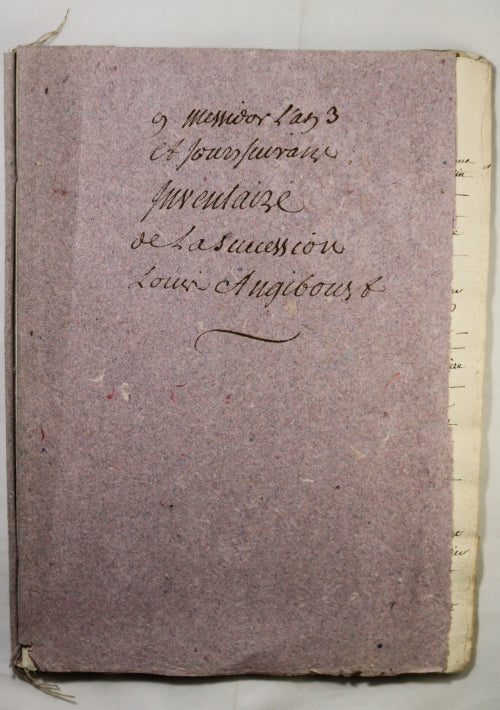 9 Messidor L'an 3
Et Jours suivans
Inventaire
de La Sucession
Louis Angiboust